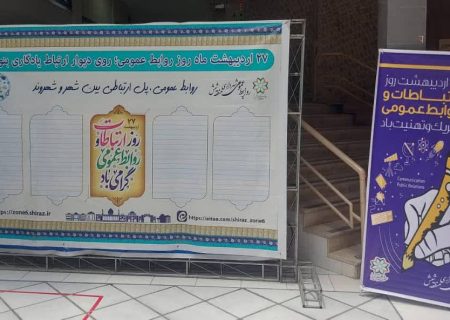 ۲۷ اردیبهشت ماه روز روابط عمومی؛ روی دیوار ارتباط یادگاری
روابط عمومی، پل ارتباطی بین شهر و شهروند
۲۷
اردیبهشت
روز ارتباطات و
روابط عمومی
گرامی باد
https://zone6.shiraz.ir
https://eitaa.com/shiraz_zone6
اردیبهشت روز
تباطات و
وابط عمومی
ریک و تهنیت باد
Communication
Public Relations